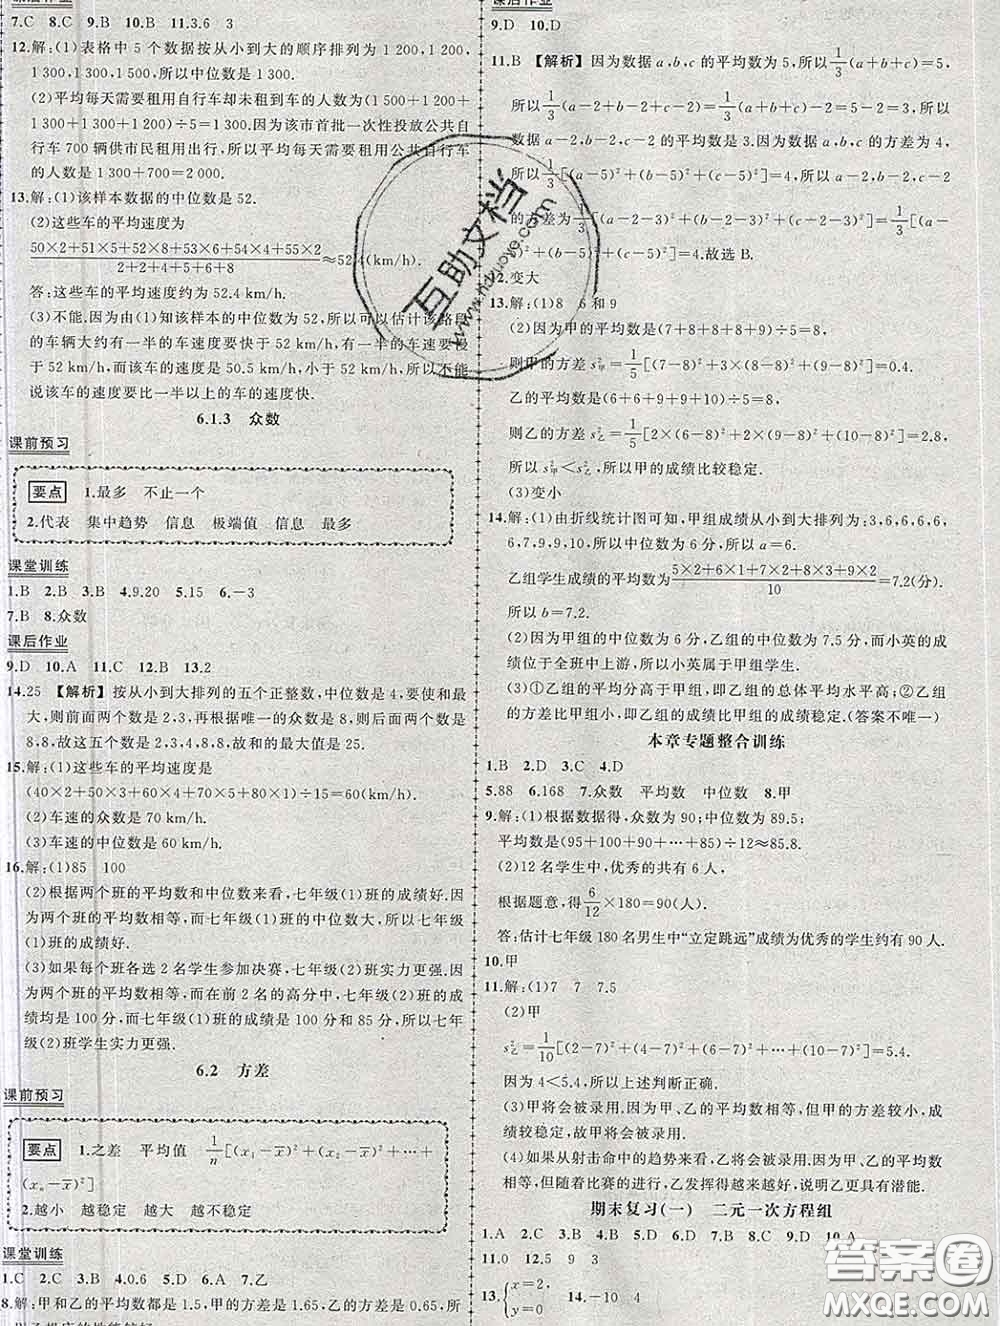 7.C 8.C 9.B 10.B 11.3.6 3
12.解:(1)表格中 5 个数据按从小到大的顺序排列为 1 200,1 200,
1 300,1 300,1 500,所以中位数是 1 300.
(2)平均每天需要租用自行车却未租到车的人数为(1 500+1 200+
1 300+1 300+1 200)÷5=1 300.因为该市首批一次性投放公共自
行车 700 辆供市民租用出行,所以平均每天需要租用公共自行车
的人数是 1 300+700=2 000.
13.解:(1)该样本数据的中位数是 52.
(2)这些车的平均速度为
(50×2+51×5+52×8+53×6+54×4+55×2)/(2+2+4+5+6+8)≈52.4(km/h).
答:这些车的平均速度约为 52.4 km/h.
(3)不能.因为由(1)知该样本的中位数为 52,所以可以估计该路段
的车辆大约有一半的车速度要快于 52 km/h,有一半的车速度要慢
于 52 km/h,而该车的速度是 50.5 km/h,小于 52 km/h,所以不能
说该车的速度要比一半以上的车的速度快.
6.1.3 众数
课前预习
要点 1.最多 不止一个
2.代表 集中趋势 信息 极端值 信息 最多
课堂训练
1.B 2.B 3.B 4.9.20 5.15 6.-3
7.B 8.众数
课后作业
9.D 10.A 11.C 12.B 13.2
14.25 【解析】按从小到大排列的五个正整数,中位数是 4,要使和最
大,则前面两个数是 2,3,再根据唯一的众数是 8,则后面两个数是
8,8,故这五个数是 2,3,4,8,8,故和的最大值是 25.
15.解:(1)这些车的平均速度是
(40×2+50×3+60×4+70×5+80×1)÷15=60(km/h).
(2)车速的众数是 70 km/h.
(3)车速的中位数是 60 km/h.
16.解:(1)85 100
(2)根据两个班的平均数和中位数来看,七年级(1)班的成绩好.因
为两个班的平均数相等,而七年级(1)班的中位数大,所以七年级
(1)班的成绩好.
(3)如果每个班各选 2 名学生参加决赛,七年级(2)班实力更强.因
为两个班的平均数相等,而在前 2 名的高分中,七年级(2)班的成
绩均是 100 分,而七年级(1)班的成绩是 100 分和 85 分,所以七年
级(2)班学生实力更强.
6.2 方差
课前预习
要点 1.之差 平均值 1/n[(x₁-x̄)²+(x₂-x̄)²+…+
(xₙ-x̄)²]
2.越小 越稳定 越大 越不稳定
课堂训练
1.C 2.C 3.B 4.0.6 5.D 6.A 7.乙
8.解:甲和乙的平均数都是 1.5,甲的方差是 0.65,乙的方差是 0.65,所
课后作业
9.D 10.D
11.B 【解析】因为数据 a,b,c 的平均数为 5,所以 1/3(a+b+c)=5,
所以 1/3(a-2+b-2+c-2)=1/3(a+b+c)-2=5-2=3,所以
数据 a-2,b-2,c-2 的平均数是 3.因为数据 a,b,c 的方差为 4,
所以 1/3[(a-5)²+(b-5)²+(c-5)²]=4,所以 a-2,b-2,c-2
的方差为 1/3[(a-2-3)²+(b-2-3)²+(c-2-3)²]=1/3[(a-
5)²+(b-5)²+(c-5)²]=4.故选 B.
12.变大
13.解:(1)8 6 和 9
(2)因为甲的平均数为(7+8+8+8+9)÷5=8,
则甲的方差 s²甲=1/5[(7-8)²+3×(8-8)²+(9-8)²]=0.4,
乙的平均数是(6+6+9+9+10)÷5=8,
则乙的方差 s²乙=1/5[2×(6-8)²+2×(9-8)²+(10-8)²]=2.8,
所以 s²甲<s²乙,所以甲的成绩比较稳定.
(3)变小
14.解:(1)由折线统计图可知,甲组成绩从小到大排列为:3,6,6,6,6,
6,7,9,9,10,所以中位数为 6 分,所以 a=6.
乙组学生成绩的平均数为(5×2+6×1+7×2+8×3+9×2)/10=7.2(分)
所以 b=7.2.
(2)因为甲组的中位数为 6 分,乙组的中位数为 7.5 分,而小英的成
绩位于全班中上游,所以小英属于甲组学生.
(3)①乙组的平均分高于甲组,即乙组的总体平均水平高;②乙组
的方差比甲组小,即乙组的成绩比甲组的成绩稳定.(答案不唯一)
本章专题整合训练
1.B 2.D 3.C 4.D
5.88 6.168 7.众数 平均数 中位数 8.甲
9.解:(1)根据数据得,众数为 90;中位数为 89.5;
平均数是(95+100+90+…+85)÷12≈85.8.
(2)12 名学生中,优秀的共有 6 人,
根据题意,得 6/12×180=90(人).
答:估计七年级 180 名男生中“立定跳远”成绩为优秀的学生约有 90 人.
10.甲
11.解:(1)7 7 7.5
(2)甲
s²乙=1/10[(2-7)²+(4-7)²+(6-7)²+…+(10-7)²]=5.4.
因为 4<5.4,所以上述判断正确.
(3)甲将会被录用.因为甲、乙的平均数相等,但甲的方差较小,成
绩较稳定,故甲将会被录用.
(4)如果从射击命中的趋势来看,乙将会被录用.因为甲、乙的平均数
相等,但随着比赛的进行,乙发挥得越来越好,说明乙更有潜能.
期末复习(一) 二元一次方程组
1.A 2.C 3.C 4.B 5.D 6.D 7.B 8.C 9.D 10.A
11.0 12.5 9 3
13.{x=2, y=0 14.-10 4
互助文档
www.hdzuoye.com
答案圈
MXQE.COM